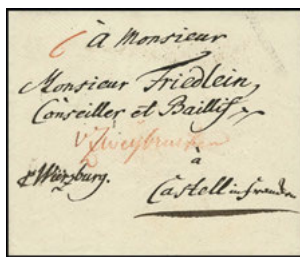 à Monsieur
Monsieur Friedlein,
Conseiller et Baillif
v Zweybrucken
à
p Würzburg.
Castell in Franken